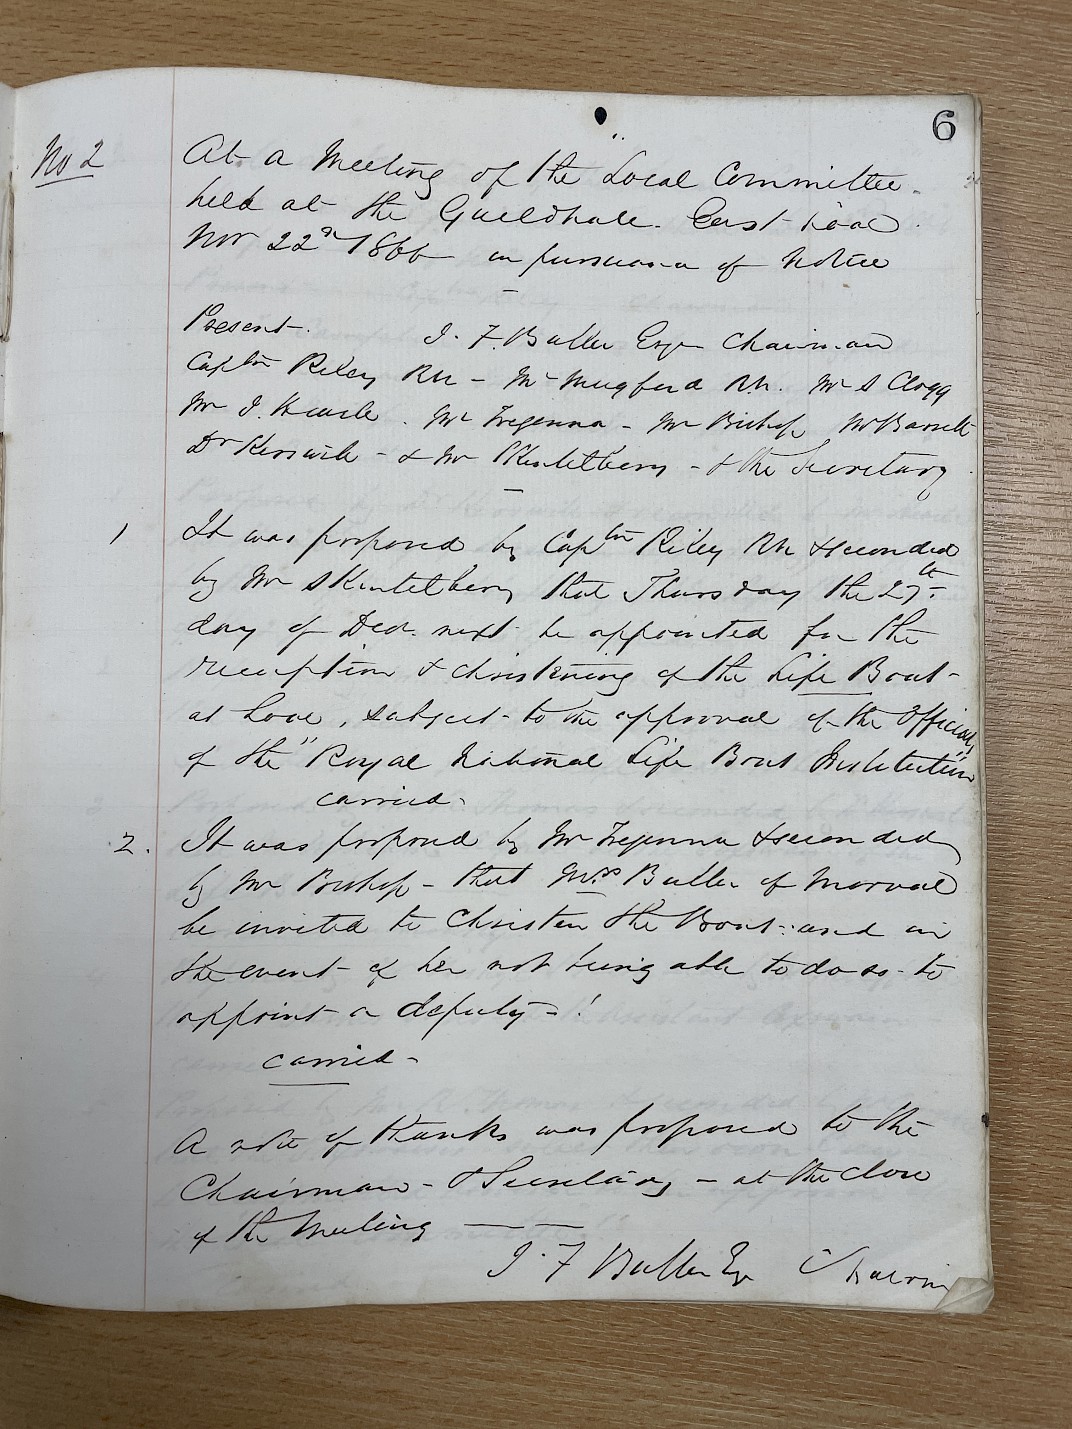 6
No 2
At a Meeting of the "Local Committee
held at the Guildhall East Looe
Nov 22nd 1866 in pursuance of Notice
Present. J. F. Buller Esqr Chairman
Captn Riley RN - Mr Mugford RN. Mr S Clogg
Mr J. . Mr Tregenna - Mr Bishop Mr Barrett
Dr Kerswill - & Mr Skentelbery - & the Secretary
1 It was proposed by Captn Riley RN & seconded
by Mr Skentelbery that Thursday the 27th
day of Decr. next be appointed for the
reception & christening of the Life Boat -
at Looe, subject to the approval of the Officials
of the "Royal National Life Boat Institution"
carried.
2. It was proposed by Mr Tregenna & seconded
by Mr Bishop - that Mrs Buller of Morval
be invited to Christen the Boat: and in
the event of her not being able to do so - to
appoint a deputy - !
carried -
A vote of thanks was proposed to the
Chairman - & Secretary - at the close
of the Meeting
J. F Buller Esqr Chairm